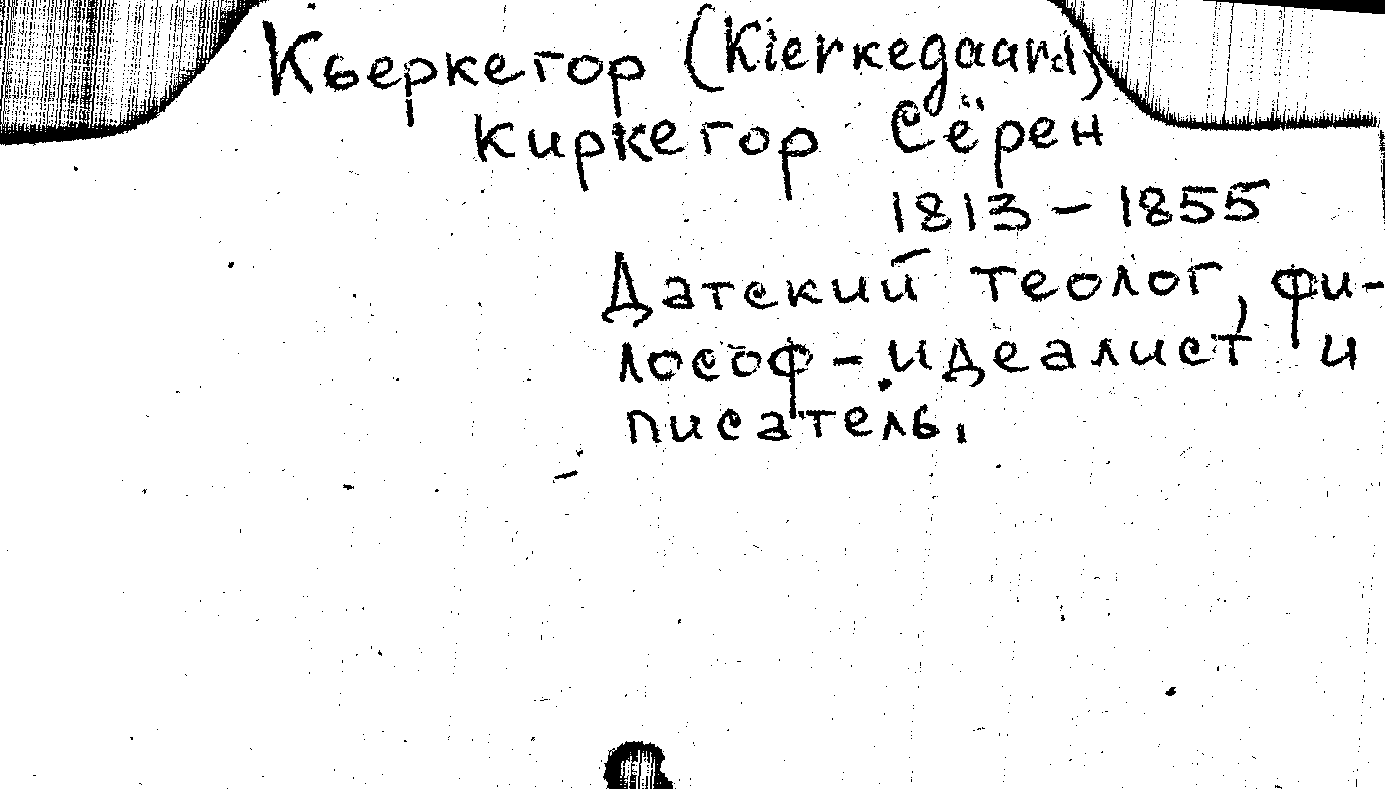 Кьеркегор (Kierkegaard)
Киркегор Сёрен
1813 – 1855
Датский теолог, фи-
лософ-идеалист и
писатель.